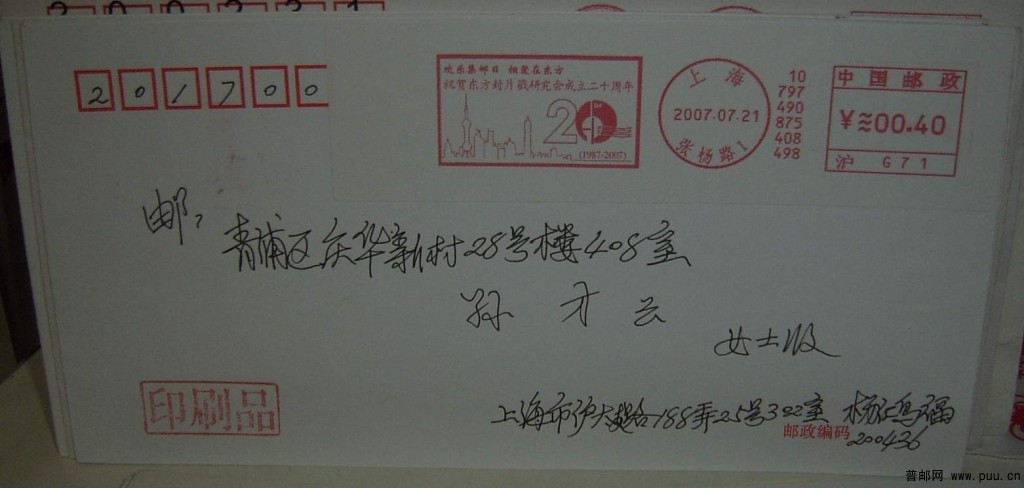 201700
欢乐集邮日 相聚在东方
祝贺东方封片戳研究会成立二十周年
20
(1987-2007)
上海
2007.07.21
张杨路1
10
797
490
875
408
498
中国邮政
¥≈00.40
沪 G71
邮:
青浦区庆华新村28号楼408室
孙才云
女士收
印刷品
上海市沪太路188弄25号302室 杨
邮政编码
200436
普邮网 www.puu.cn